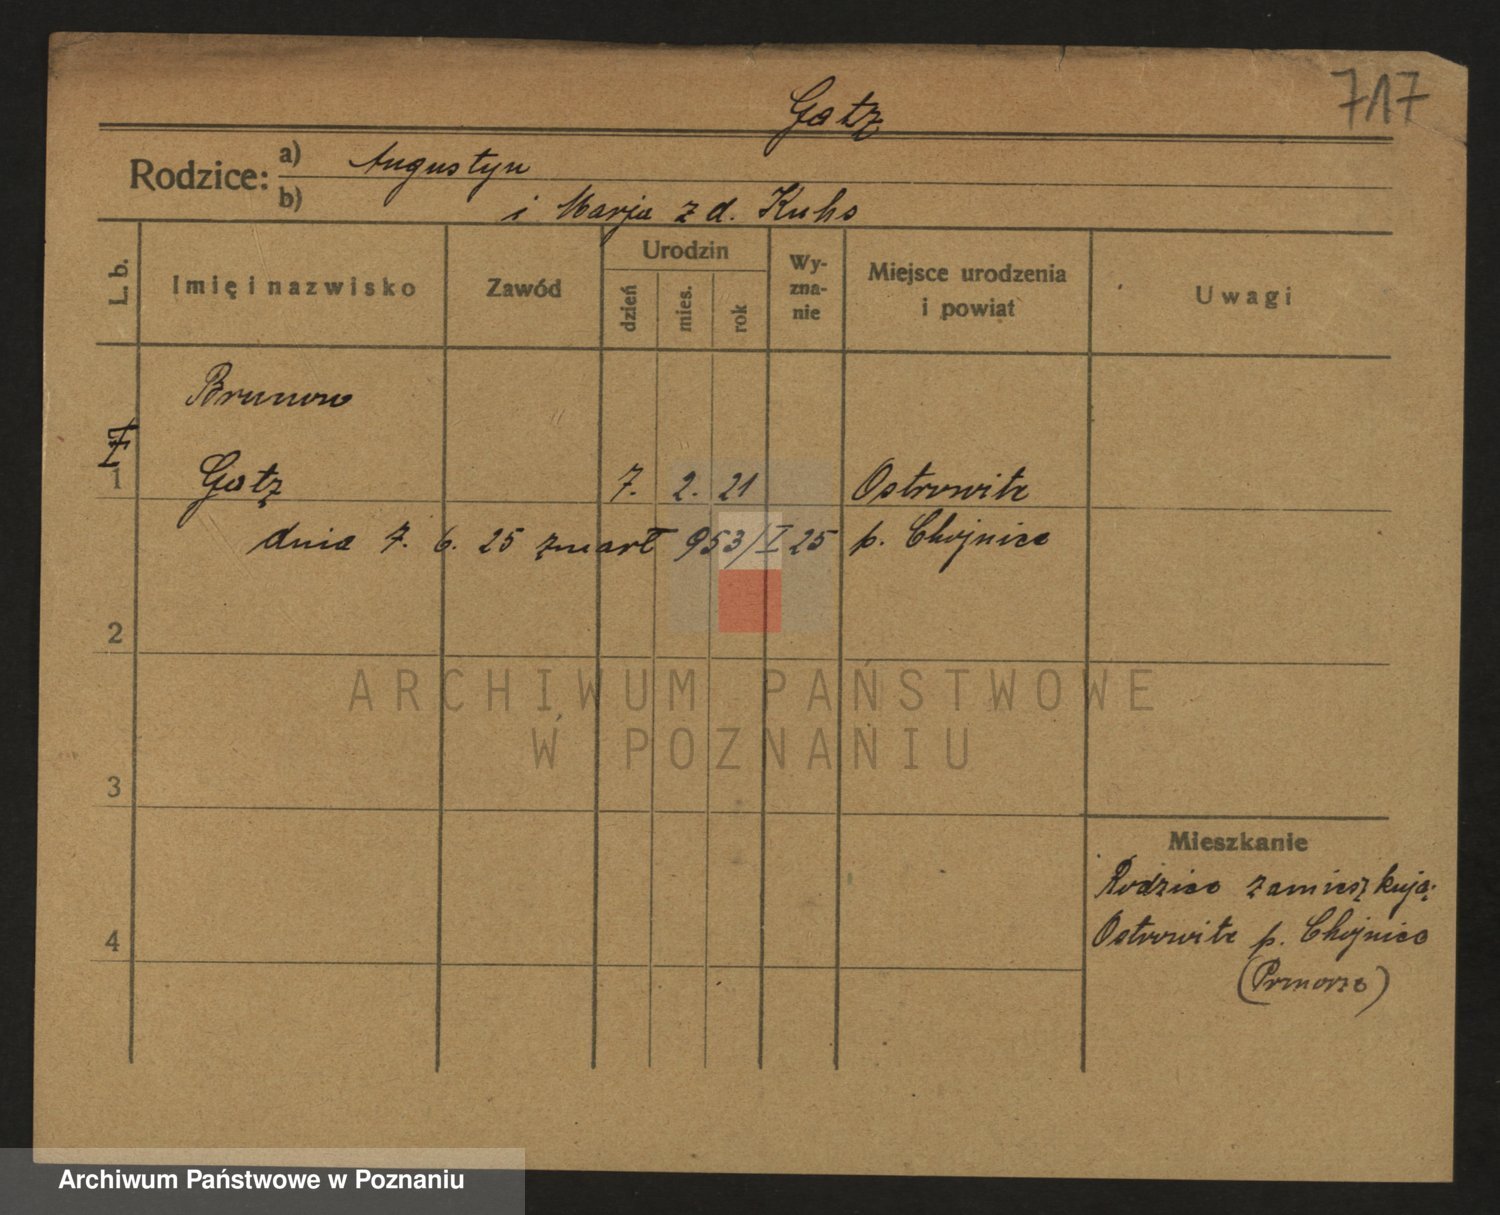 717
Gatz
Rodzice: a) Augustyn
b) i Marja z d. Kuhs
L. b. Imię i nazwisko Zawód Urodzin dzień mies. rok Wyznanie Miejsce urodzenia i powiat Uwagi
Brunon
1 Gatz 7. 2. 21 Ostrowite
dnia 7. 6. 25 zmarł 953/I 25 p. Chojnice
2
ARCHIWUM PAŃSTWOWE
W POZNANIU
3
Mieszkanie
Rodzice zamieszkują
4 Ostrowite p. Chojnice
(Pomorze)
Archiwum Państwowe w Poznaniu